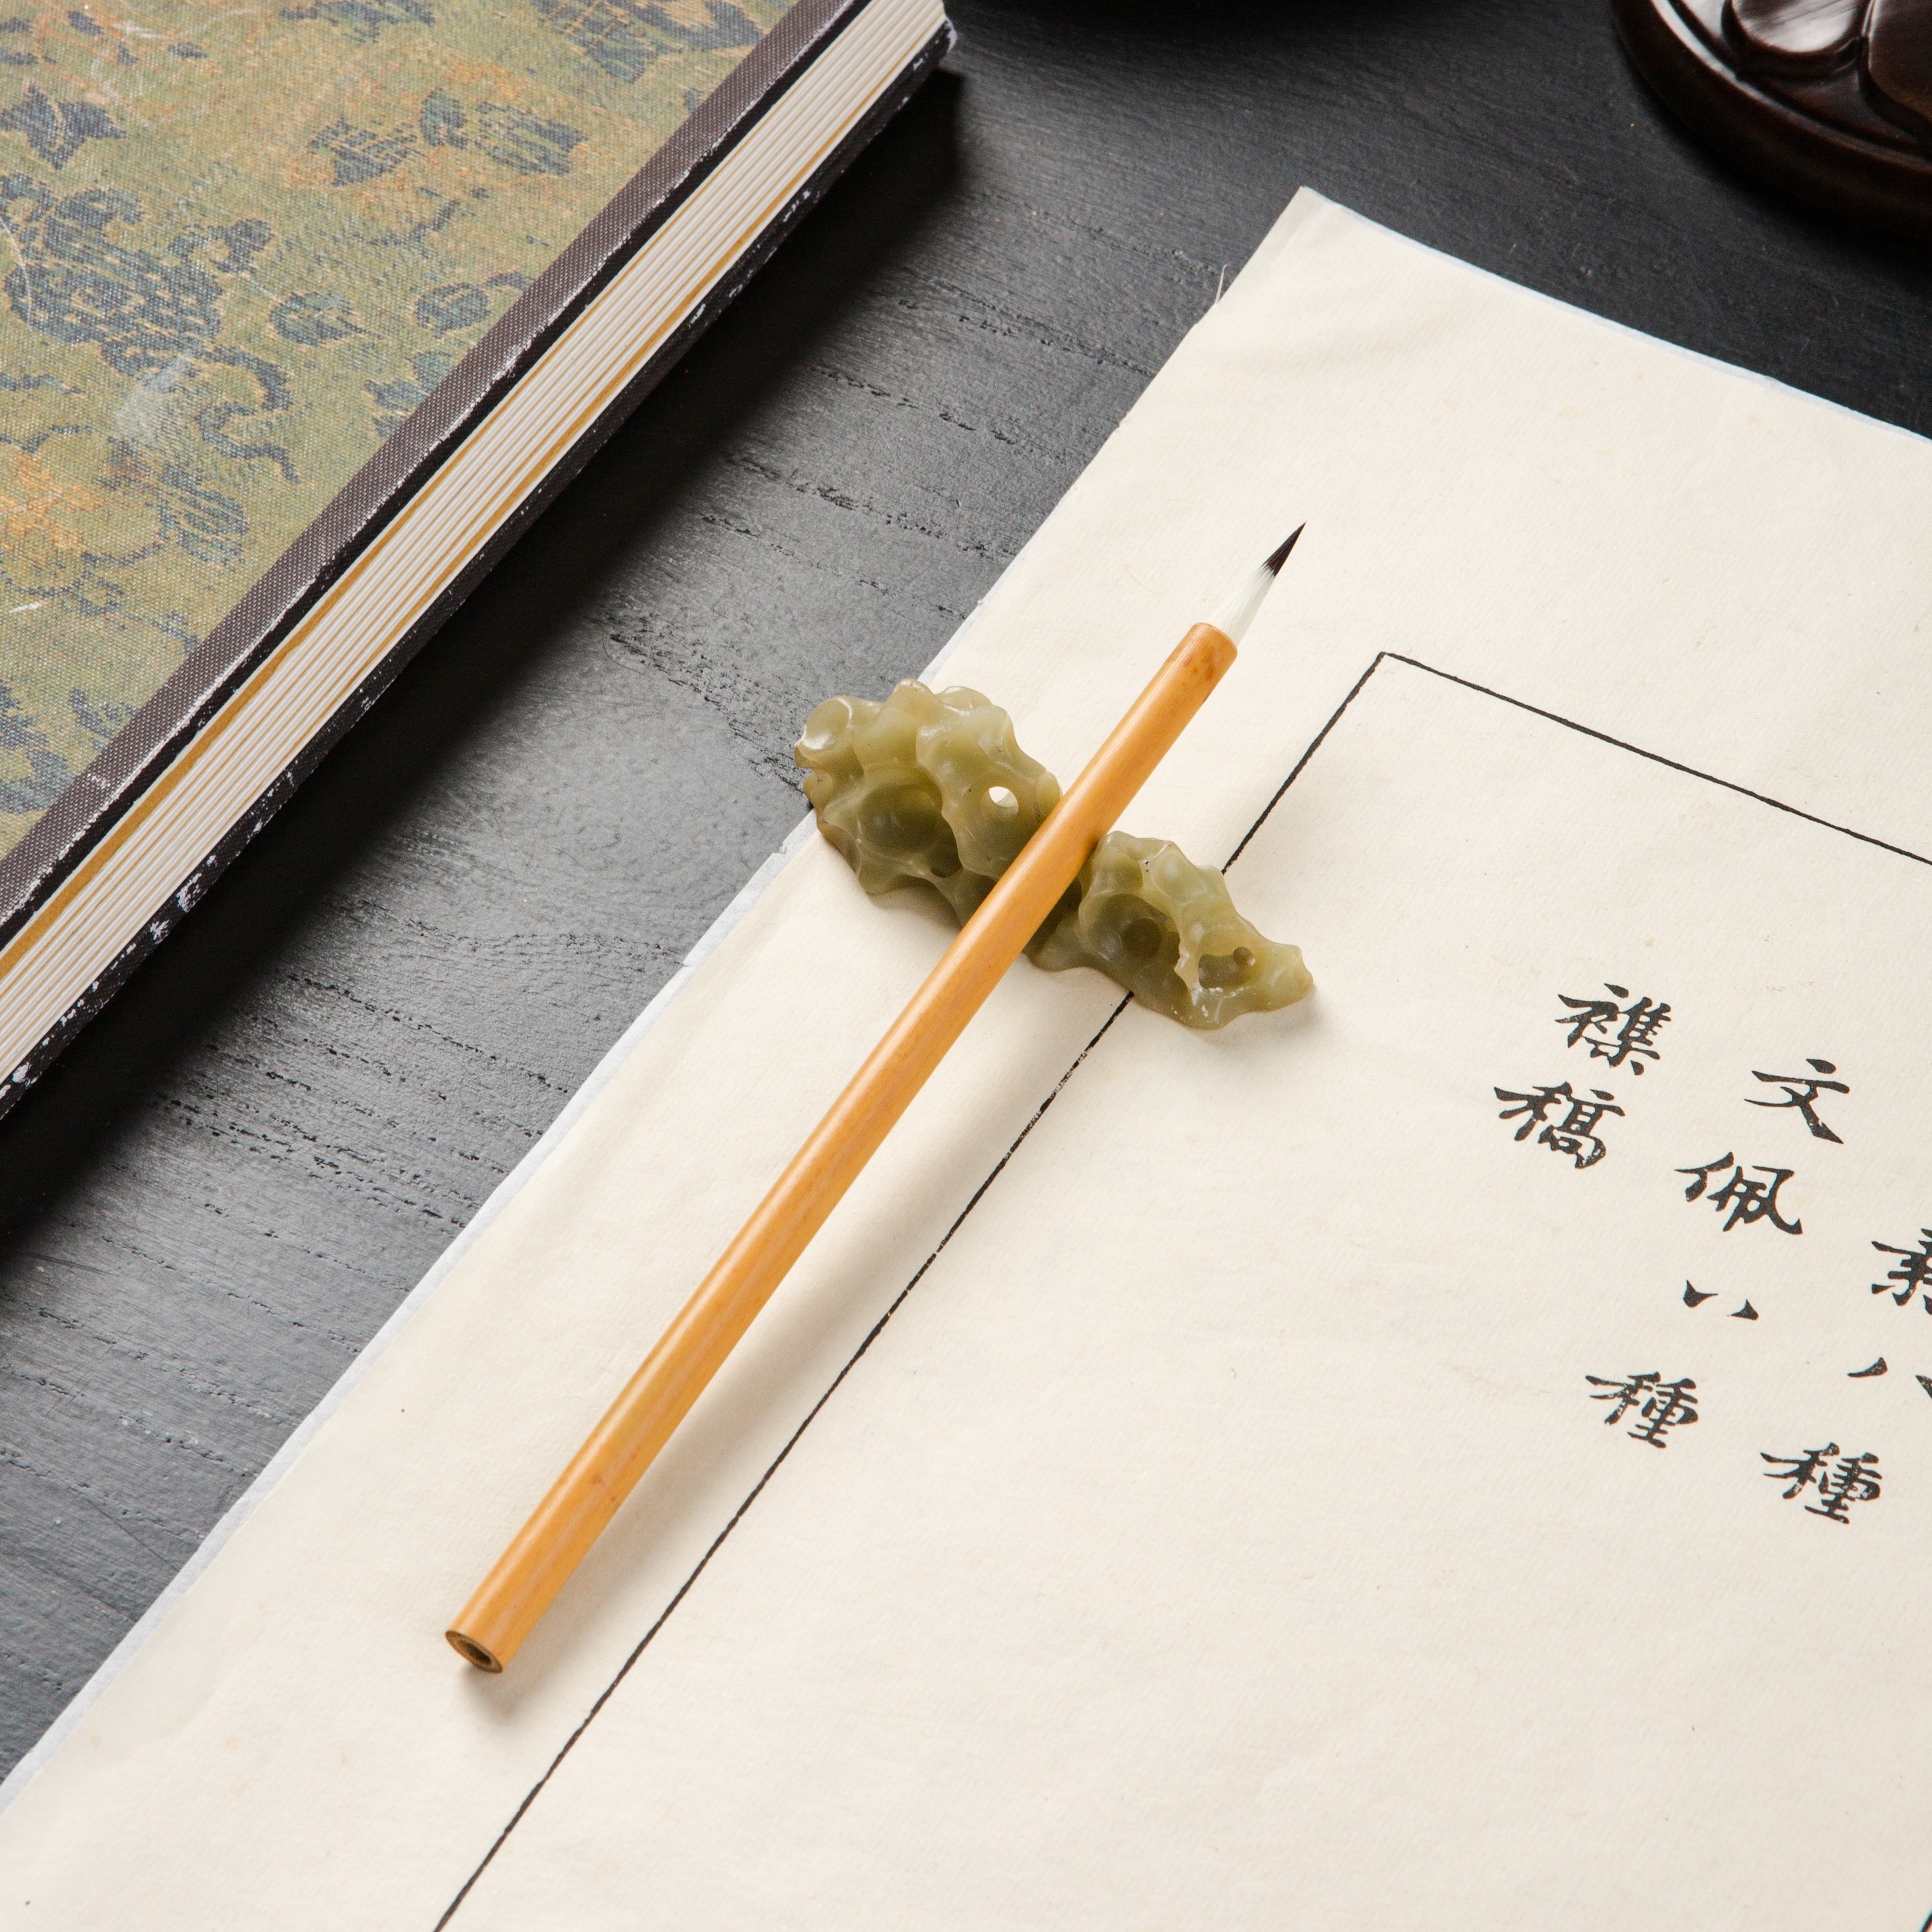 八種
文佩八種
襍稿